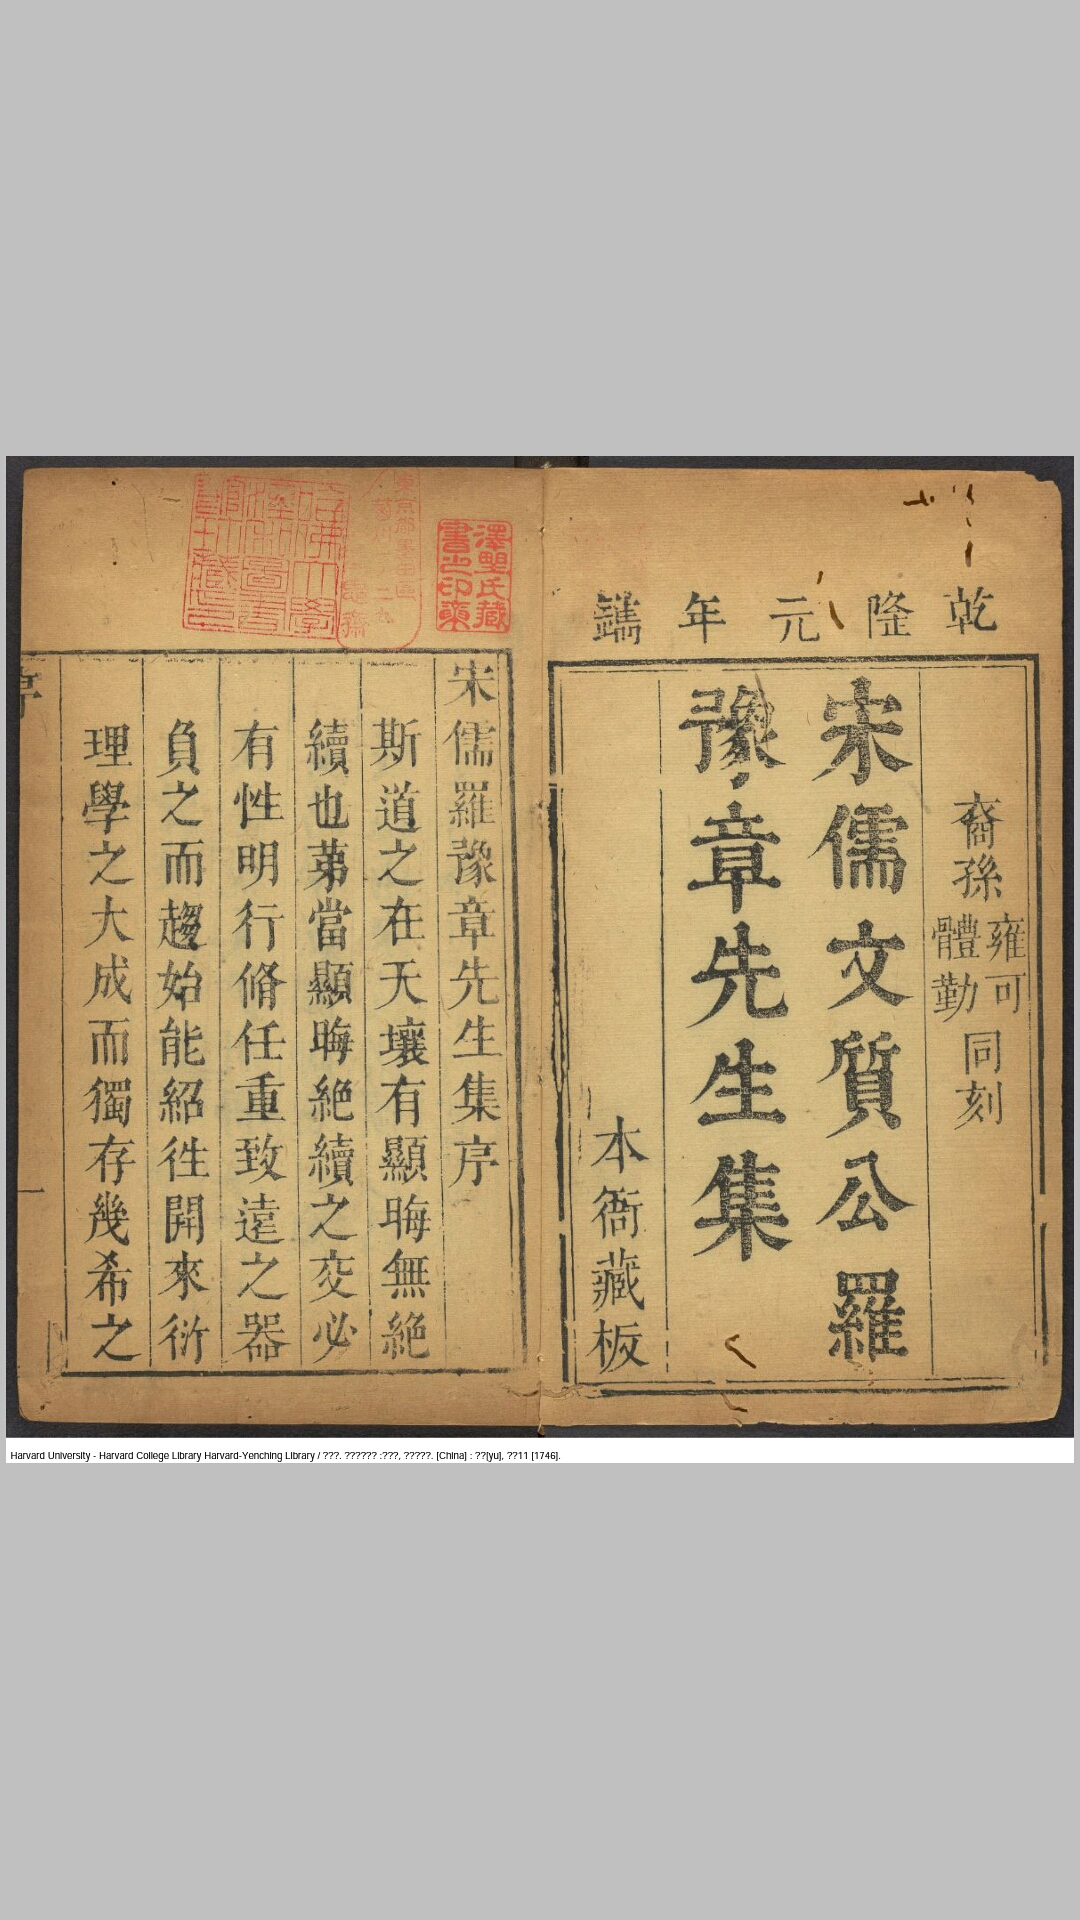 乾隆元年鐫
裔孫雍可體勤同刻
宋儒文質公羅
豫章先生集
本衙藏板
宋儒羅豫章先生集序
斯道之在天壤有顯晦無絶
續也苐當顯晦絶續之交必
有性明行脩任重致遠之器
負之而趨始能紹徃開來衍
理學之大成而獨存幾希之
序
一
Harvard University - Harvard College Library Harvard-Yenching Library / ???. ?????? :???, ?????. [China] : ??[yu], ??11 [1746].